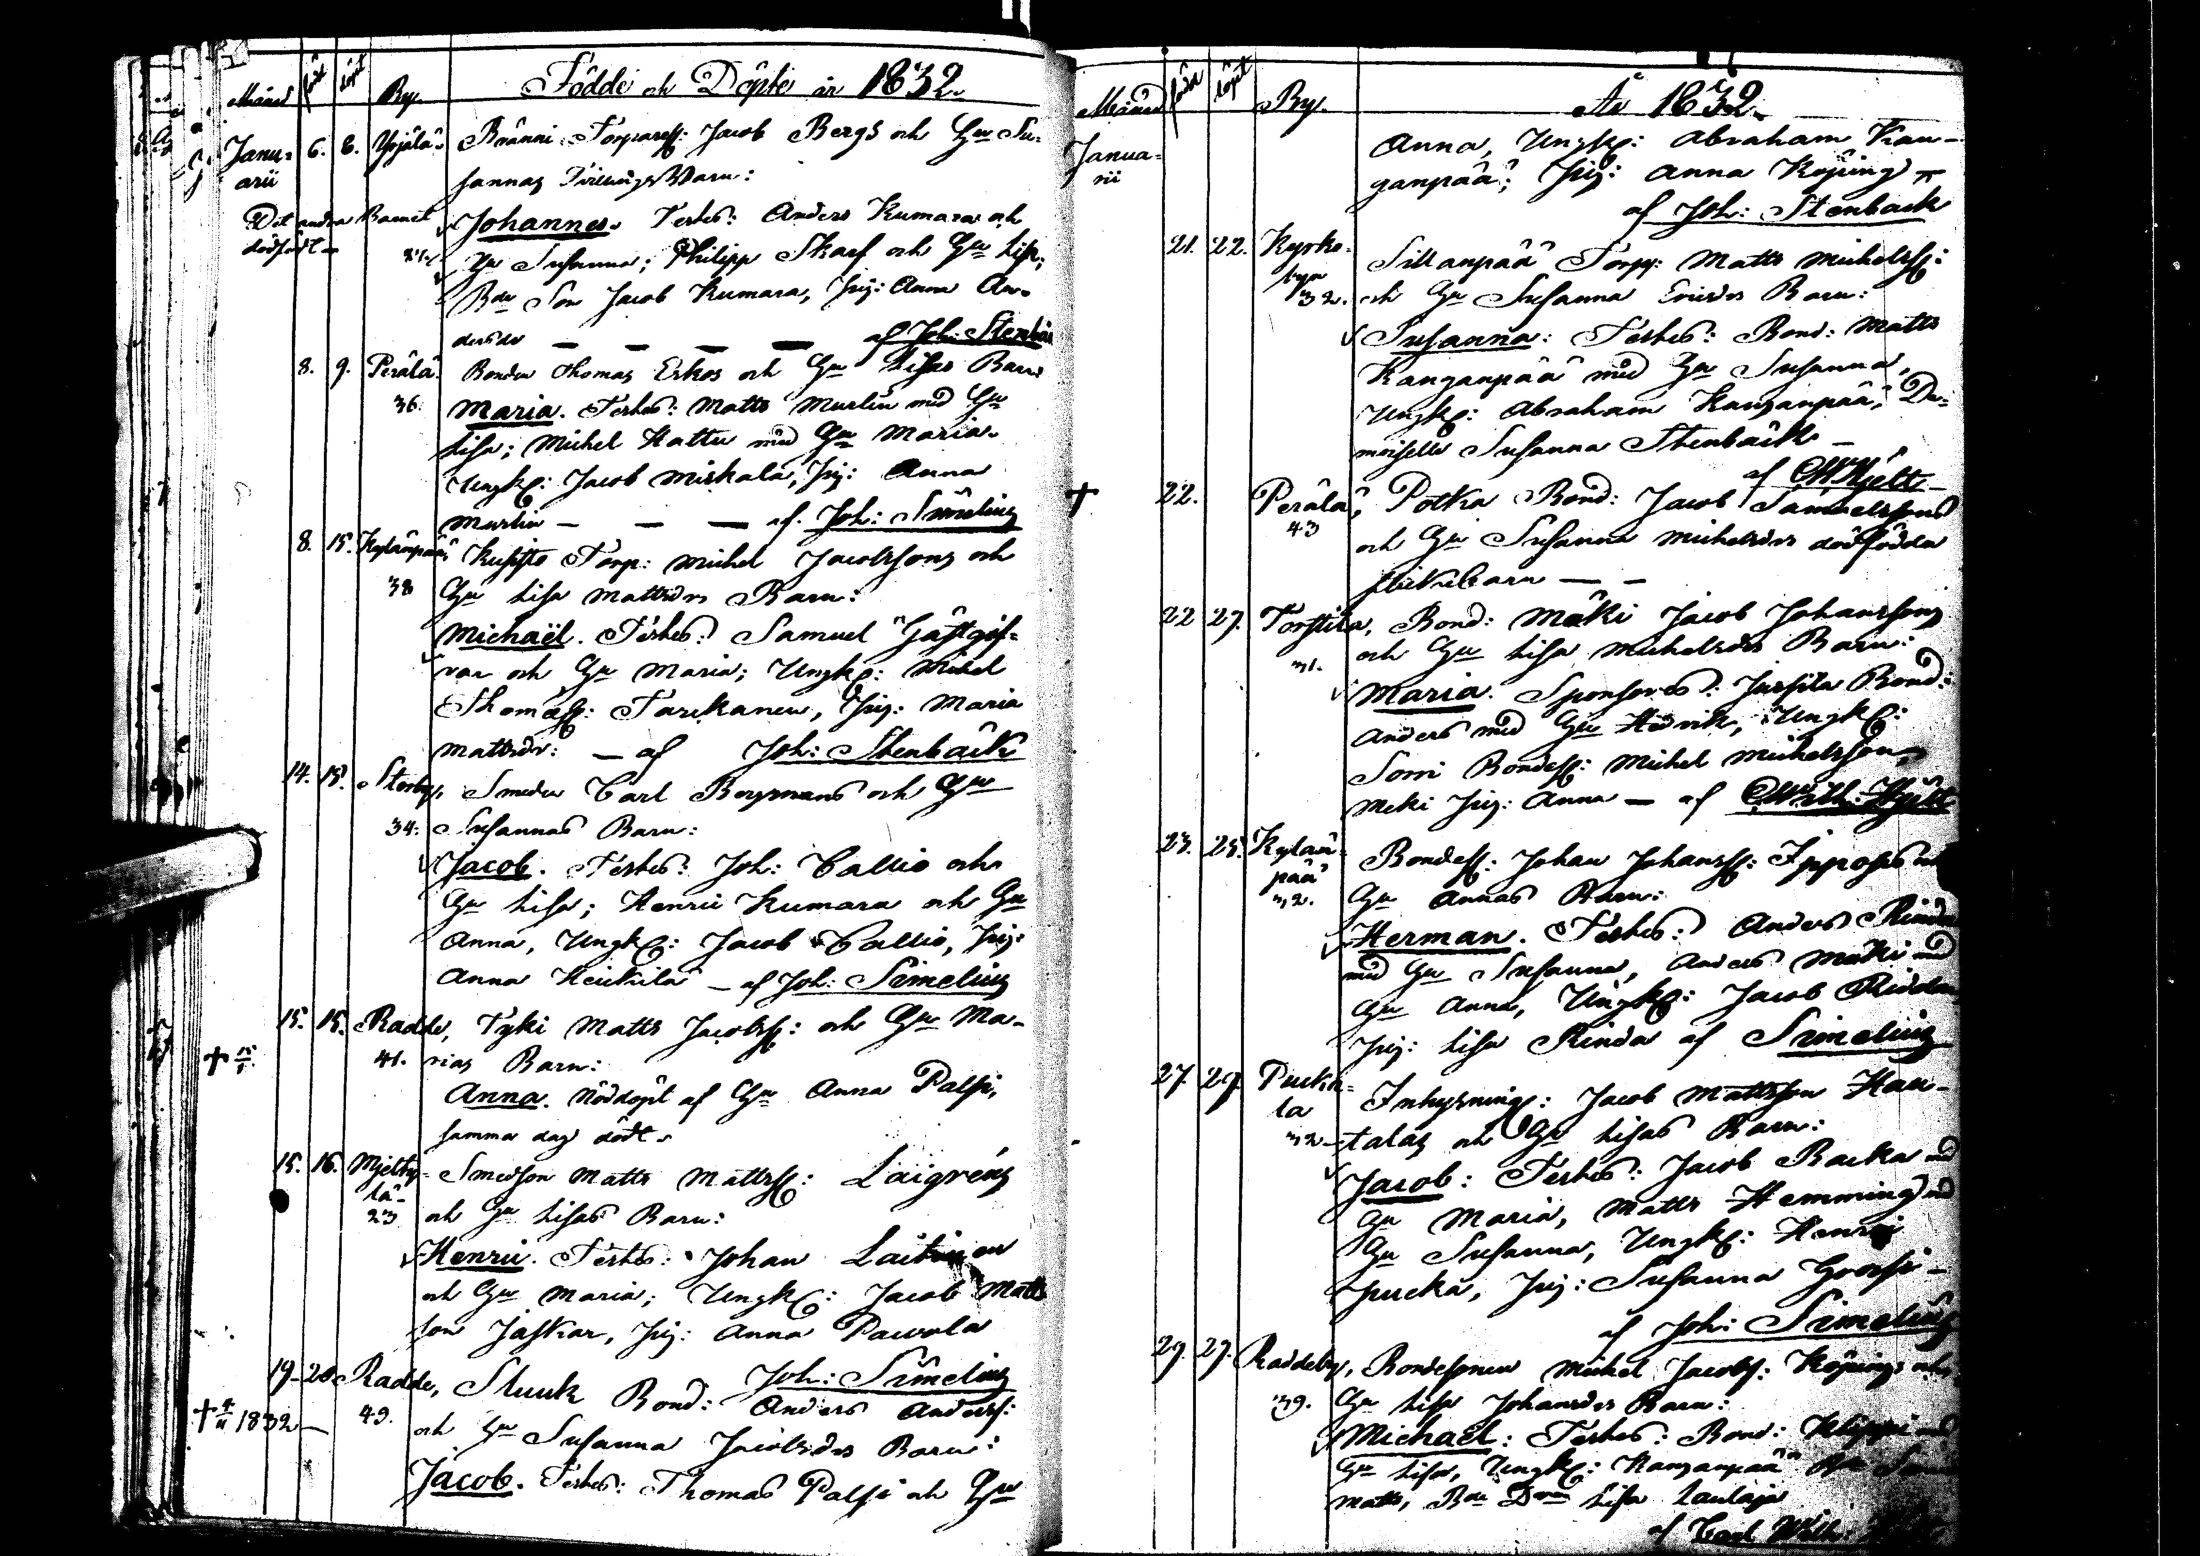 Månad född döpt By. Födde och Döpte år 1832.
Janu- 6. 8. Yrjälä. Brånni Torpares: Jacob Bergs och Hu Su-
arii sannas Tvillings Barn:
Det andra Barnet Johannes. Testes: Anders Kumara och
dödfödt Hu Susanna; Philipp Skarf och Hu Lisa;
Bde Son Jacob Kumara, Pig: Anna An-
dersdr — — — — af Joh: Stenbäck
8. 9. Perälä. Bonden Thomas Erkos och Hu Lisas Barn
36. Maria. Testes: Matts Murtin med Hu
Lisa; Michel Hattu med Hu Maria.
Ungk: Jacob Miskala, Pig: Anna
Murtin — — — af. Joh: Simelius
8. 15. Kylänpää, Kujsto Torp: Michel Jacobssons och
38 Hu Lisa Mattsdrs Barn:
Michaël. Testes: Samuel Gästgif-
var och Hu Maria; Ungk: Michel
Thomass: Tarckanen, Pig: Maria
Mattsdr: — af Joh: Stenbäck
14. 15. Storby, Smeden Carl Bergmans och Hu
34. Susannas Barn:
Jacob. Testes: Joh: Callio och
Hu Lisa; Henric Kumara och Hu
Anna, Ungk: Jacob Callio, Pig:
Anna Heickilä — af Joh: Simelius
15. 15. Radde, Tyki Matts Jacobss: och Hu Ma-
41. rias Barn:
Anna. Nöddöpt af Hu Anna Palsi,
samma dag död.
15. 16. Mjelby- Smedson Matts Mattss: Laigréns
lä- 23 och Hu Lisas Barn:
Henric. Testes: Johan Laitinen
och Hu Maria; Ungk: Jacob Matts
son Jaskar, Pig: Anna Pawola
Joh: Simelius
19. 20. Radde, Stuuk Bond: Anders Anderss:
1832 — 43. och Hu Susanna Jacobsdrs Barn:
Jacob. Testes: Thomas Palsi och Hu
Månad född döpt By. År 1832.
Janua- Anna, Ungk: Abraham Kan-
rii ganpää; Pig: Anna Köping
af Joh: Stenback
21. 22. Kyrko- Sillanpää Torp: Matts Michelss:
byn 32. och Hu Susanna Ericsdrs Barn:
Susanna: Testes: Bond: Matts
Kanganpää med Hu Susanna,
Ungk: Abraham Kanganpää, De-
moiselle Susanna Stenbäck —
af CWHjelt
22. Perälä, Potka Bond: Jacob Samuelssons
43 och Hu Susanna Michelsdrs dödfödda
flickebarn — —
22 27. Torstila, Bond: Mäki Jacob Johanssons
31. och Hu Lisa Michelsdrs Barn:
Maria. Sponsores: Jussila Bond:
Anders med Hu Hedvik, Ungk:
Somi Bondess: Michel Michelsson,
Meki Pig: Anna — af CWilh: Hjelt
23. 25. Kylän- Bondess: Johan Johanss: Ippossas och
pää 32. Hu Annas Barn:
Herman. Testes: Anders Rinda
med Hu Susanna, Anders Mäki med
Hu Anna, Ungk: Jacob
Pig: Lisa Rinda af Simelius
27. 29. Pucki- Inhysning: Jacob Mattsson Hau-
la 32 talas och Hu Lisas Barn:
Jacob: Testes: Jacob Backa med
Hu Maria, Matts Hemming med
Hu Susanna, Ungk: Henric
pucka, Pig: Susanna Groosi —
af Joh: Simelius
29. 29. Raddeby, Bondesonen Michel Jacobs: Köpings och
39. Hu Lisa Johansdrs Barn:
Michaël: Testes: Bond: Klippi med
Hu Lisa, Ungk: Kanganpää
Matts, Bde Lisa Laulaja
af Carl Wilh: